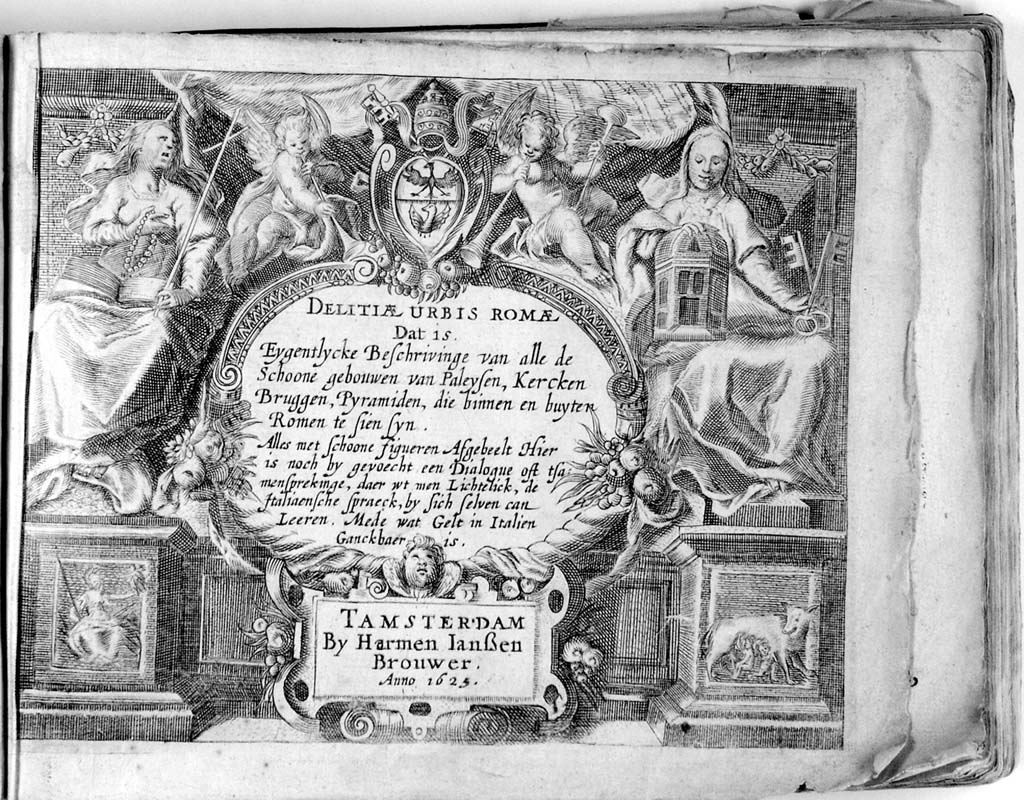 DELITIÆ URBIS ROMÆ
Dat is.
Eygentlycke Beschrivinge van alle de
Schoone gebouwen van Paleysen, Kercken
Bruggen, Pyramiden, die binnen en buyten
Romen te sien syn.
Alles met schoone figueren Afgebeelt Hier
is noch by gevoecht een Dialogue oft tsa
mensprekinge, daer wt men Lichtelick, de
Italiaensche spraeck, by sich selven can
Leeren. Mede wat Gelt in Italien
Ganckbaer is.
TAMSTERDAM
By Harmen Ianßen
Brouwer.
Anno 1625.